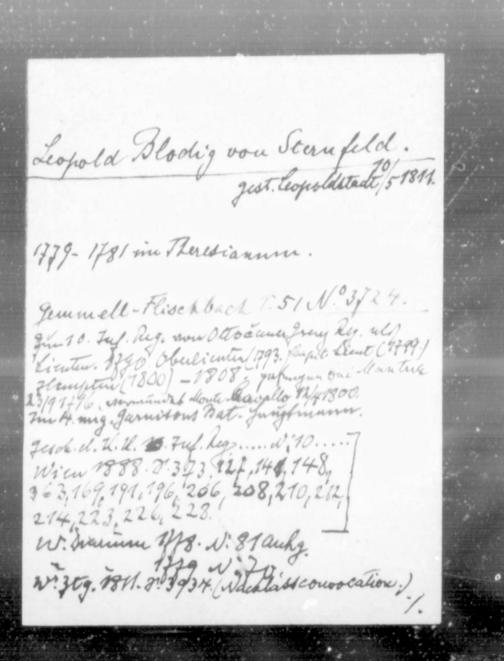 Leopold Blodig von Sternfeld.
gest. Leopoldstadt 10/5 1811.
1779-1781 im Theresianum.
Gemmell-Flischbach T. 51 No 3724.
Zum 10. Inf. Reg. vom Ottočaner Grenz Reg. als
Lieuten. 1790 Oberlieuten (1793. Lieut (1799)
(1800) - 1808, gefangen Mantua
23/9 1796, verwundet Monte 1800.
Im 4. Garnisons Bat. Hauptmann.
Gesch. d. K. K. Inf. Reg..... N. 10.....
Wien 1888. S. 323, 127, 141, 148,
163, 169, 191, 196, 206, 208, 210, 212,
214, 223, 226, 228.
W. Diarium 1778. N: 81 anhg.
1779 N:
W. Ztg. 1811. S. 3934. (Nachlassconvocation.)
./.